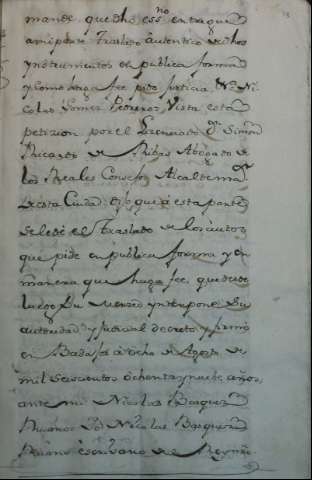 mande que dho essno entregue
a mi parte Traslado autentico de dhos
ynstrumentos en publica forma
y como haga fee pido justicia Dn Ni
colas Gomez Vista esta
petizion por el Lizenciado Dn Simon
Ricardo de Ribas Abogado de
los Reales Consejos Alcalde mor
de esta Ciudad dijo que a esta parte
se le dé el Traslado de los autos
que pide en publica forma y en
manera que haga fee, que desde
luego Su Merzed ynterpone Su
autoridad y judicial decreto, y firmó
en Badajoz a ocho de Agosto de
mil seiscientos ochenta y nuebe años,
ante mi Nicolas Basquez
Nicolas Basquez
escribano de